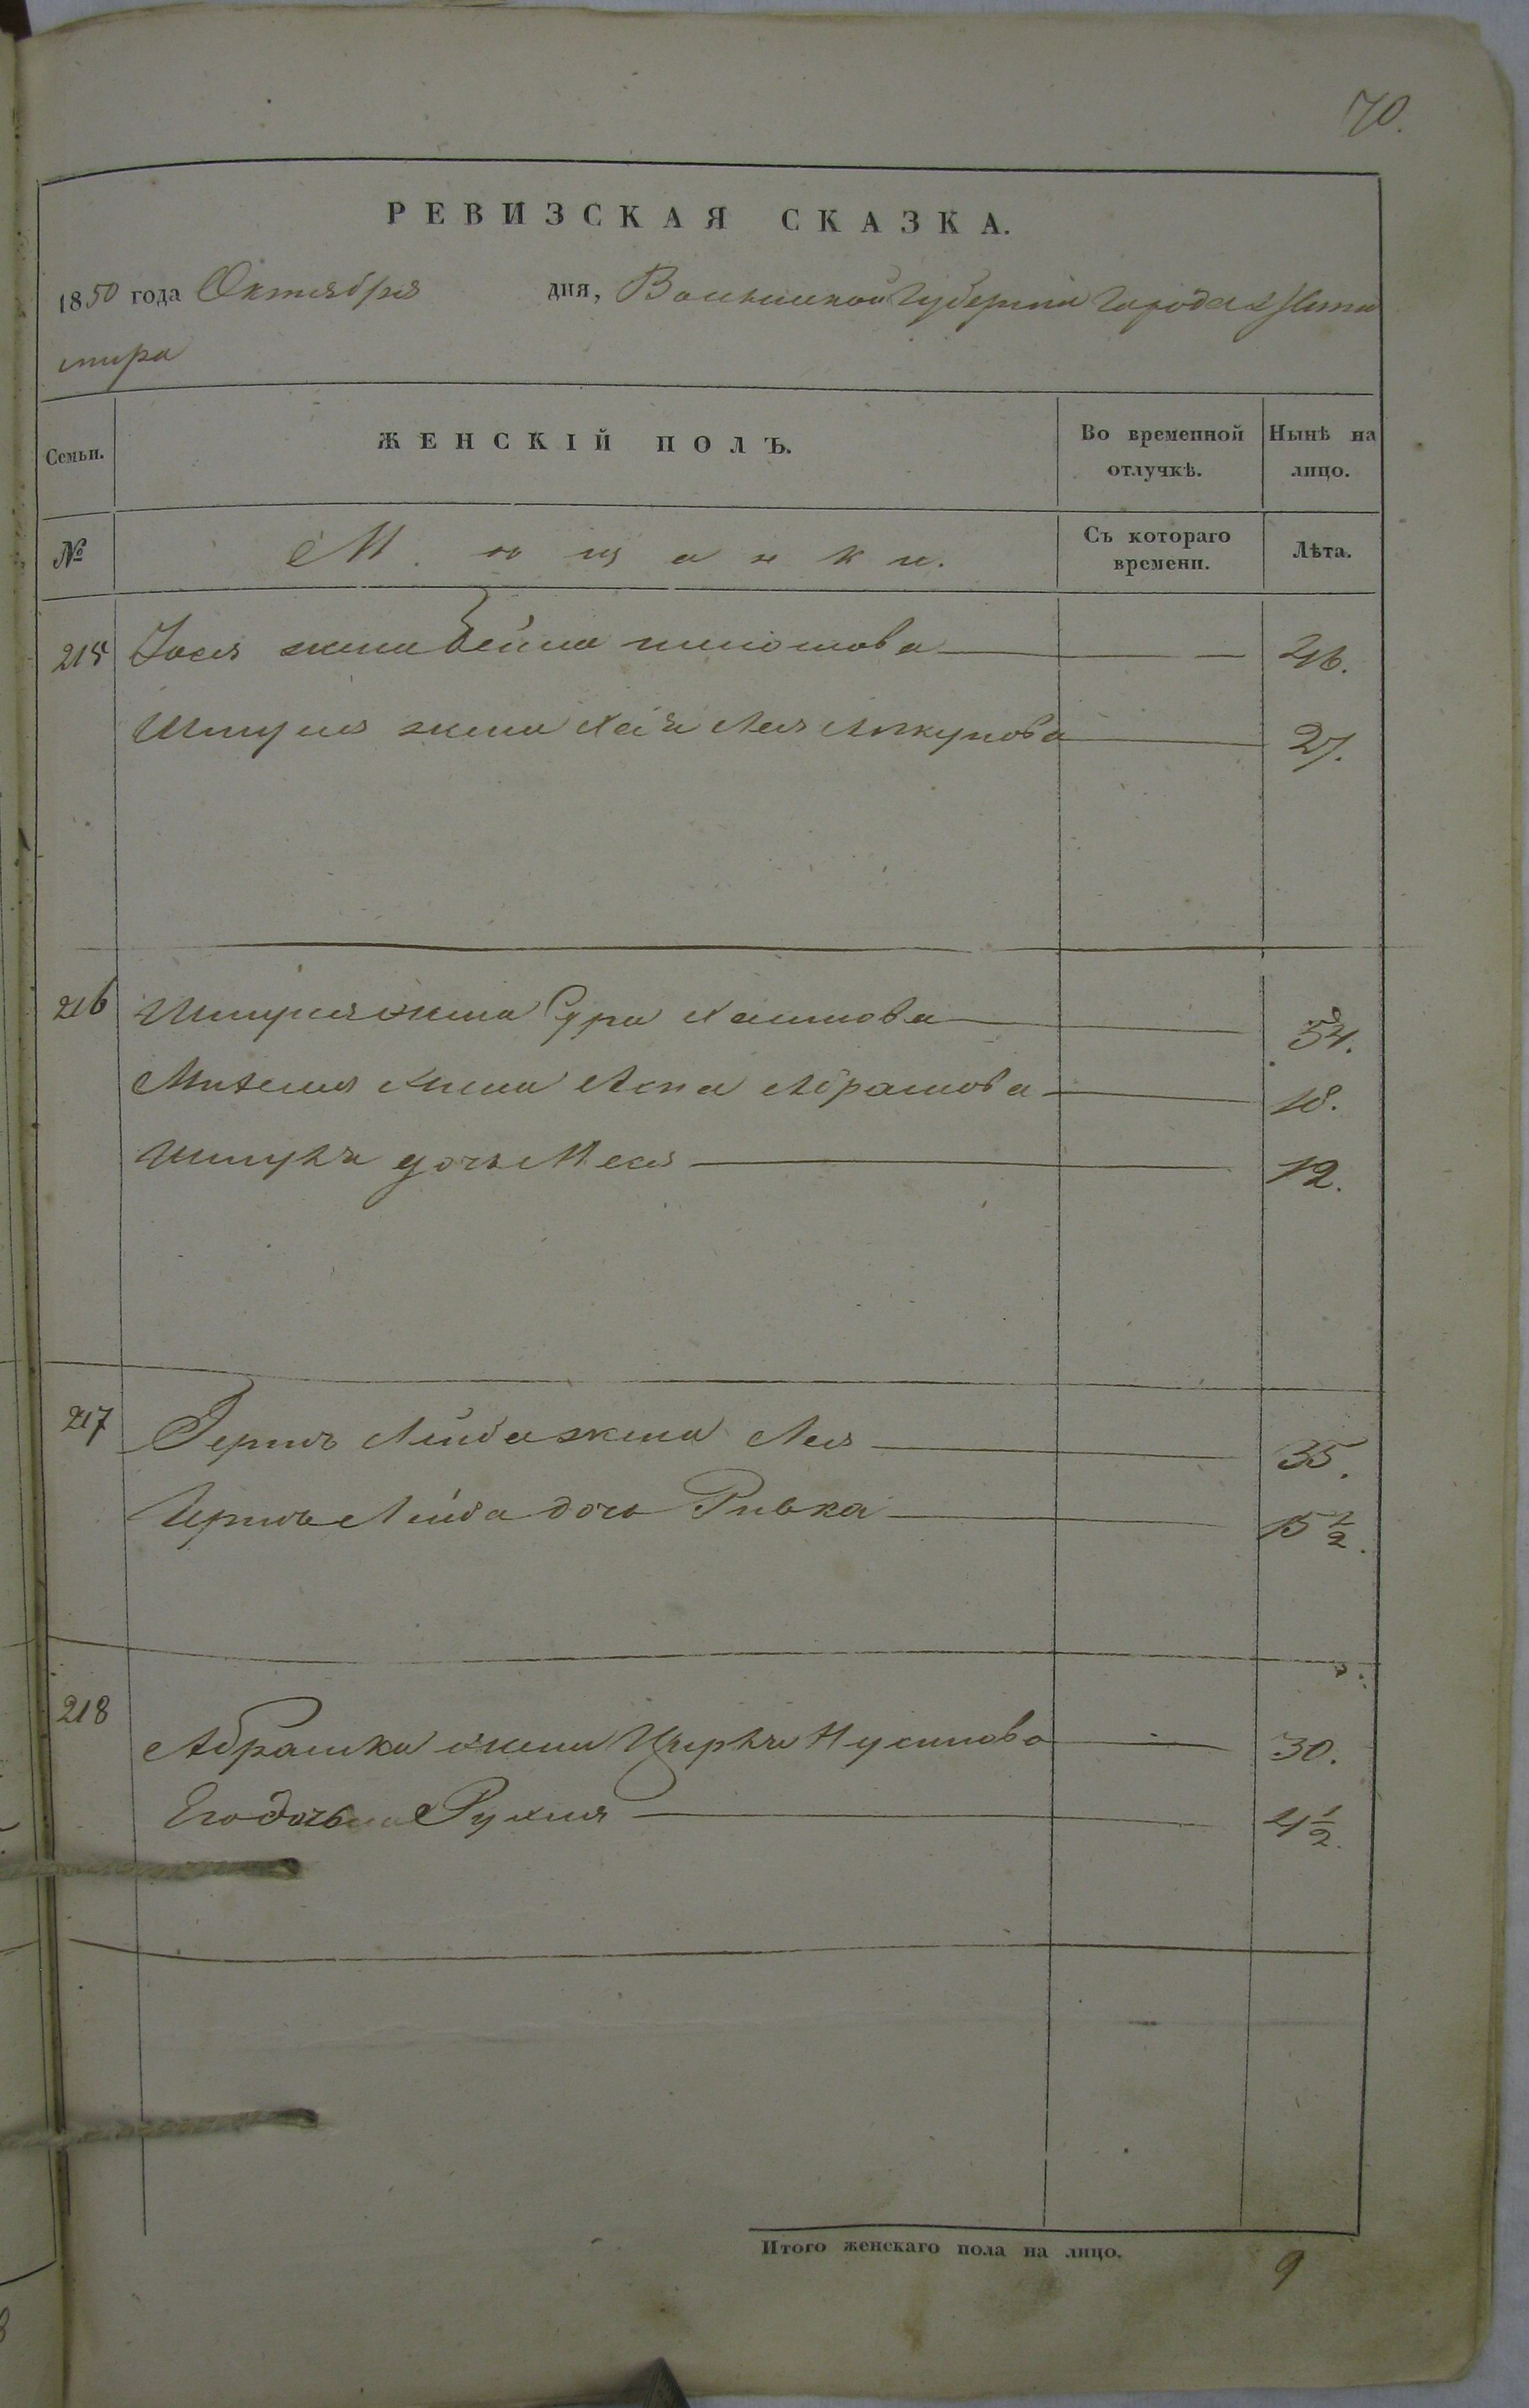 70.
РЕВИЗСКАЯ СКАЗКА.
1850 года Октября дня, Волынской Губернiи Города Жито
мира
Семьи. ЖЕНСКIЙ ПОЛЪ. Во временной отлучкѣ. Нынѣ на лицо.
№ Мѣщанки. Съ котораго времени. Лѣта.
215 Iося жена Бейла 46.
Шмуля жена Хая Лея Янкулова 27.
216 Шмуля жена Сура Хаимова 54.
жена Абрамова 18.
Шмуля дочь 12.
217 Лейба жена Лея 35.
Лейба дочь Ривка 15 1/2.
218 Абрамка жена Нусимова 30.
Его дочь Рухля 4 1/2.
Итого женскаго пола на лицо. 9